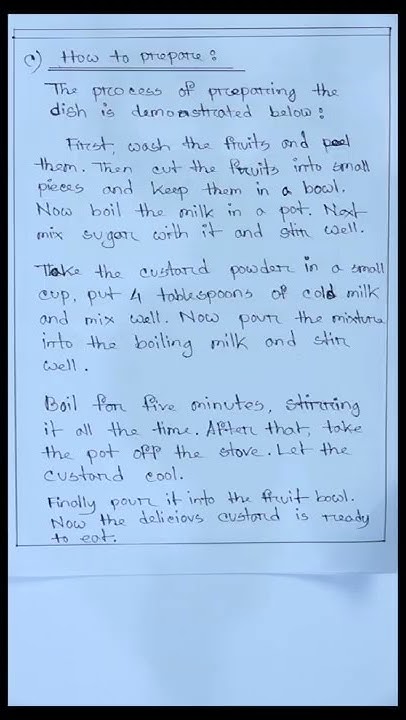 c) How to prepare:
The process of preparing the
dish is demonstrated below:
First, wash the fruits and peel
them. Then cut the fruits into small
pieces and keep them in a bowl.
Now boil the milk in a pot. Next
mix sugar with it and stir well.
Take the custard powder in a small
cup, put 4 tablespoons of cold milk
and mix well. Now pour the mixture
into the boiling milk and stir
well.
Boil for five minutes, stirring
it all the time. After that, take
the pot off the stove. Let the
custard cool.
Finally pour it into the fruit bowl.
Now the delicious custard is ready
to eat.